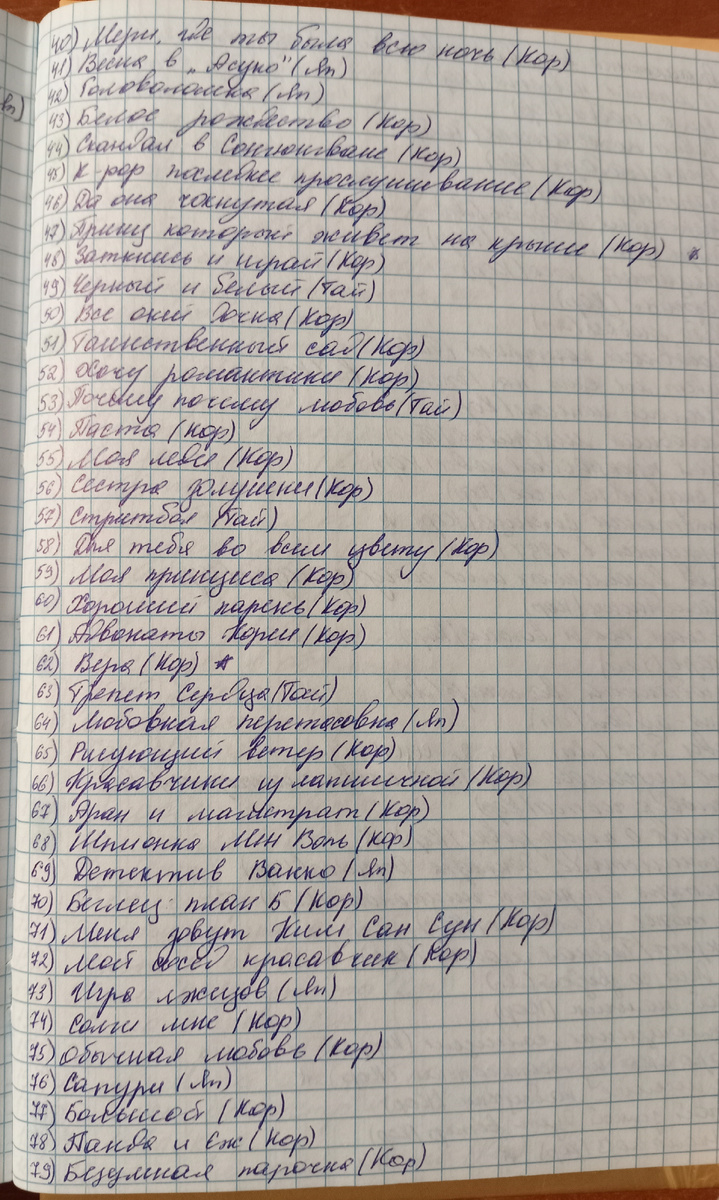 Яп)
40) Мери, где ты была всю ночь (Кор)
41) Весна в „Асуко" (Яп)
42) Головоломка (Яп)
43) Белое рождество (Кор)
44) Скандал в Сонгюнгване (Кор)
45) K-pop последнее прослушивание (Кор)
46) Да она чокнутая (Кор)
47) Принц который живет на крыше (Кор) *
48) Заткнись и играй (Кор)
49) Черный и белый (Тай)
50) Все о моей (Кор)
51) Таинственный сад (Кор)
52) Хочу романтики (Кор)
53) Почему почему любовь (Тай)
54) Паста (Кор)
55) Моя леди (Кор)
56) Сестра золушки (Кор)
57) Стритбол (Тай)
58) Для тебя во всем цвету (Кор)
59) Моя принцеса (Кор)
60) Хороший парень (Кор)
61) Адвокаты Кореи (Кор)
62) Вера (Кор) *
63) Трепет сердца (Тай)
64) Любовная перетасовка (Яп)
65) Рисующий ветер (Кор)
66) Красавчики из лапшичной (Кор)
67) Аран и магистрат (Кор)
68) Шпионка Мён Воль (Кор)
69) Детектив Ванко (Яп)
70) Беглец: план Б (Кор)
71) Меня зовут Ким Сан Сун (Кор)
72) Мой сосед красавчик (Кор)
73) Игра лжецов (Яп)
74) Солги мне (Кор)
75) Обычная любовь (Кор)
76) Сапури (Яп)
77) Большой (Кор)
78) Панда и ёж (Кор)
79) Безумная парочка (Кор)